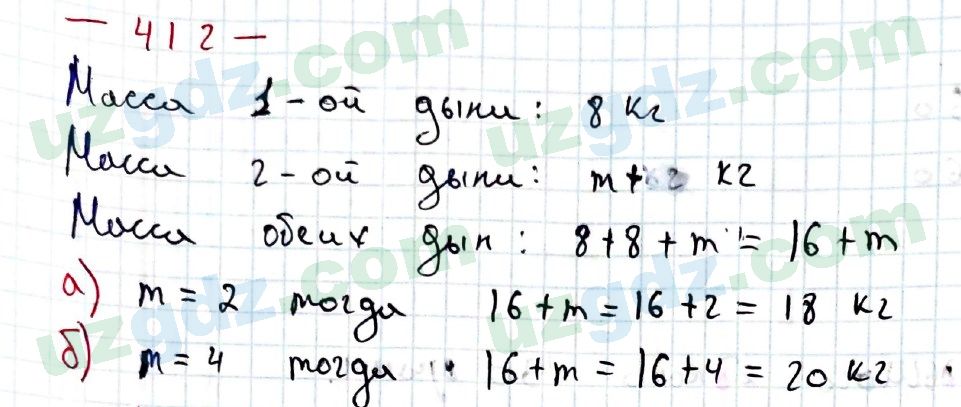 — 412 —
Масса 1-ой дыни: 8 кг
Масса 2-ой дыни: m+ кг
Масса обеих дын: 8+8+m = 16+m
а) m = 2 тогда 16+m = 16+2 = 18 кг
б) m = 4 тогда 16+m = 16+4 = 20 кг
uzgdz.com